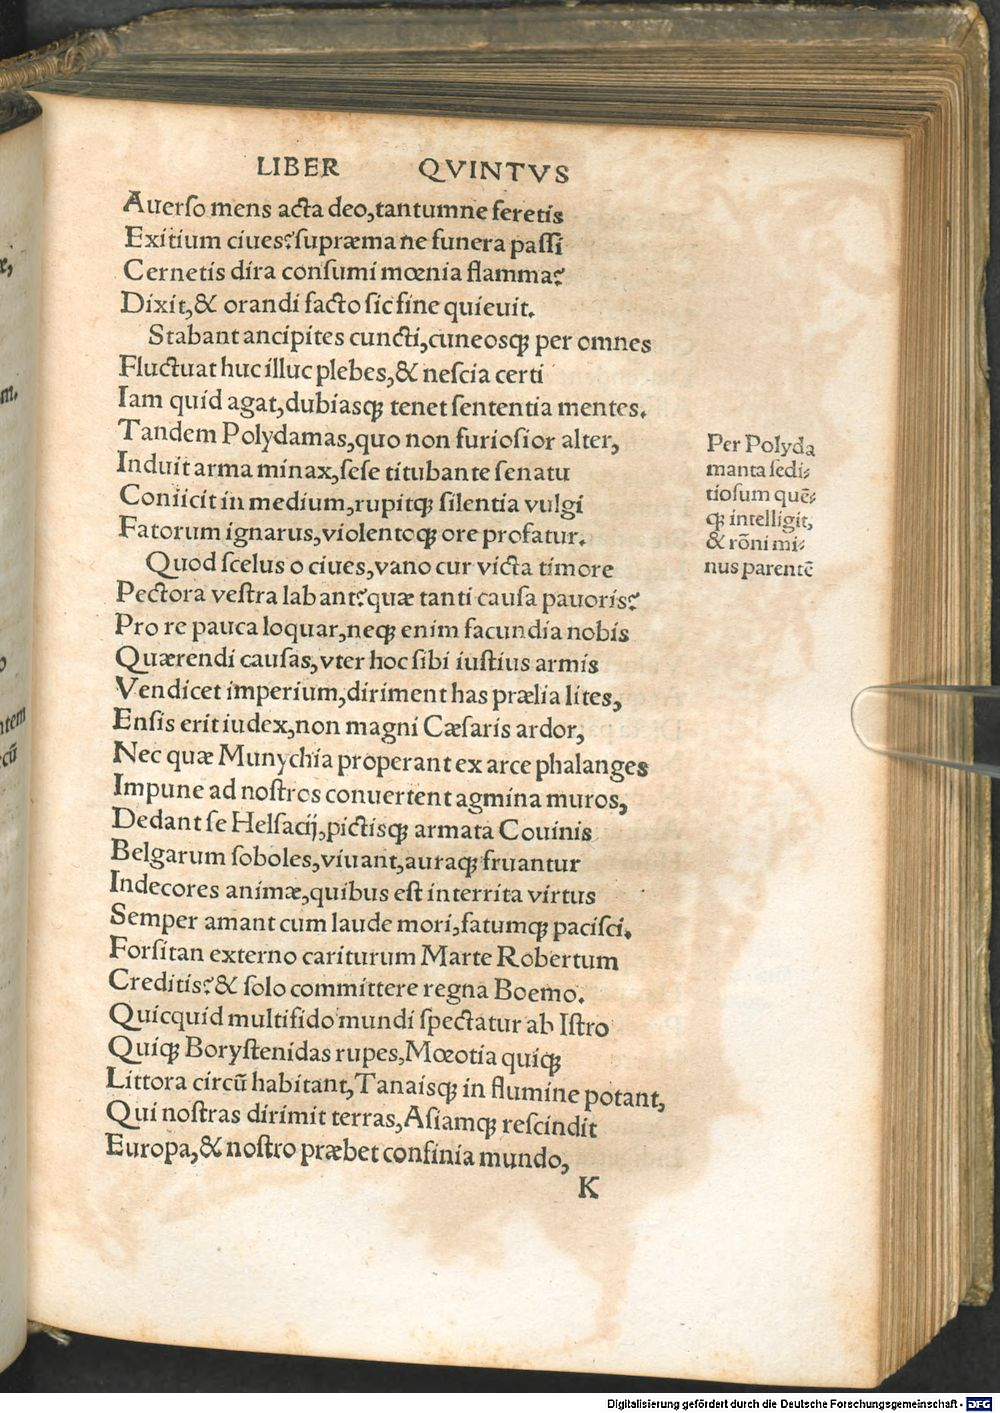 LIBER QVINTVS
Auerſo mens acta deo,tantumne feretis
Exitium ciues?ſupræma ne funera paſſi
Cernetis dira conſumi mœnia flamma?
Dixit,& orandi facto ſic fine quieuit.
Stabant ancipites cuncti,cuneosq; per omnes
Fluctuat huc illuc plebes,& neſcia certi
Iam quid agat,dubiasq; tenet ſententia mentes.
Tandem Polydamas,quo non furioſior alter,
Induit arma minax,ſeſe titubante ſenatu
Coniicit in medium,rupitq; ſilentia vulgi
Fatorum ignarus,violentoq; ore profatur.
Quod ſcelus o ciues,vano cur victa timore
Pectora veſtra labant?quæ tanti cauſa pauoris?
Pro re pauca loquar,neq; enim facundia nobis
Quærendi cauſas,vter hoc ſibi iuſtius armis
Vendicet imperium,diriment has prælia lites,
Enſis erit iudex,non magni Cæſaris ardor,
Nec quæ Munychia properant ex arce phalanges
Impune ad noſtros conuertent agmina muros,
Dedant ſe Helſacij,pictisq; armata Couinis
Belgarum ſoboles,viuant,auraq; fruantur
Indecores animæ,quibus eſt interrita virtus
Semper amant cum laude mori,fatumq; paciſci.
Forſitan externo cariturum Marte Robertum
Creditis?& ſolo committere regna Boemo.
Quicquid multifido mundi ſpectatur ab Iſtro
Quiq; Boryſtenidas rupes,Mœotia quiq;
Littora circū habitant,Tanaisq; in flumine potant,
Qui noſtras dirimit terras,Aſiamq; reſcindit
Europa,& noſtro præbet confinia mundo,
K
Per Polyda
manta ſedi⸗
tioſum quē⸗
q; intelligit,
& rōni mi⸗
nus parentē
Digitalisierung gefördert durch die Deutsche Forschungsgemeinschaft - DFG